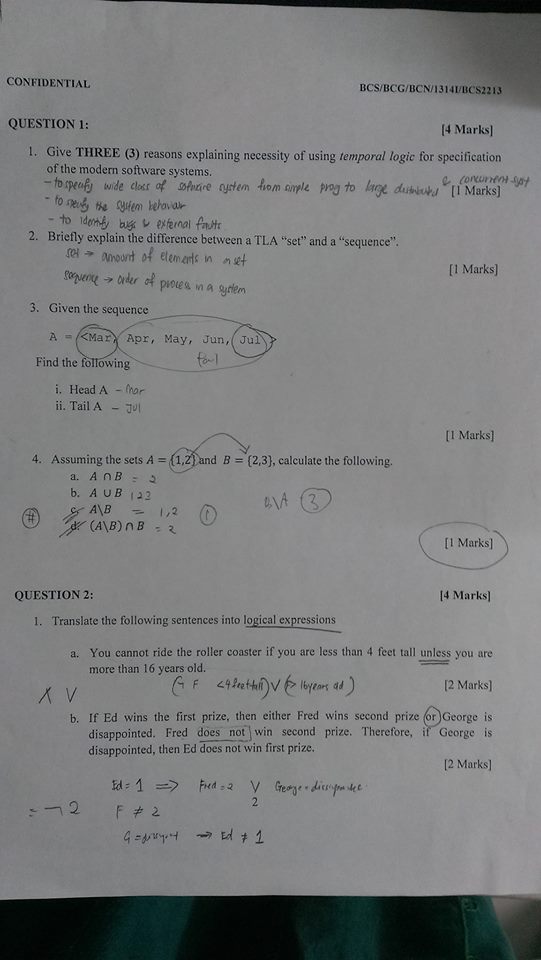 CONFIDENTIAL BCS/BCG/BCN/1314I/BCS2213
QUESTION 1: [4 Marks]
1. Give THREE (3) reasons explaining necessity of using temporal logic for specification
of the modern software systems.
- to specify wide class of software system from simple prog to large distributed & concurrent syst
[1 Marks]
- to specify the system behaviour
- to identify bugs & external faults
2. Briefly explain the difference between a TLA “set” and a “sequence”.
set → amount of elements in a set
[1 Marks]
sequence → order of process in a system
3. Given the sequence
A = <Mar, Apr, May, Jun, Jul>
tail
Find the following
i. Head A - Mar
ii. Tail A - Jul
[1 Marks]
4. Assuming the sets A = {1,2} and B = {2,3}, calculate the following.
a. A ∩ B = 2
b. A ∪ B 123
B\A 3
# c. A\B = 1,2 1
d. (A\B) ∩ B = 2
[1 Marks]
QUESTION 2: [4 Marks]
1. Translate the following sentences into logical expressions
a. You cannot ride the roller coaster if you are less than 4 feet tall unless you are
more than 16 years old.
(¬ F <4 feet tall) ∨ (> 16 years old) [2 Marks]
∧ ∨
b. If Ed wins the first prize, then either Fred wins second prize or George is
disappointed. Fred does not win second prize. Therefore, if George is
disappointed, then Ed does not win first prize.
[2 Marks]
Ed = 1 ⇒ Fred = 2 ∨ George =
2
= ¬ 2 F ≠ 2
G = ⇒ Ed ≠ 1